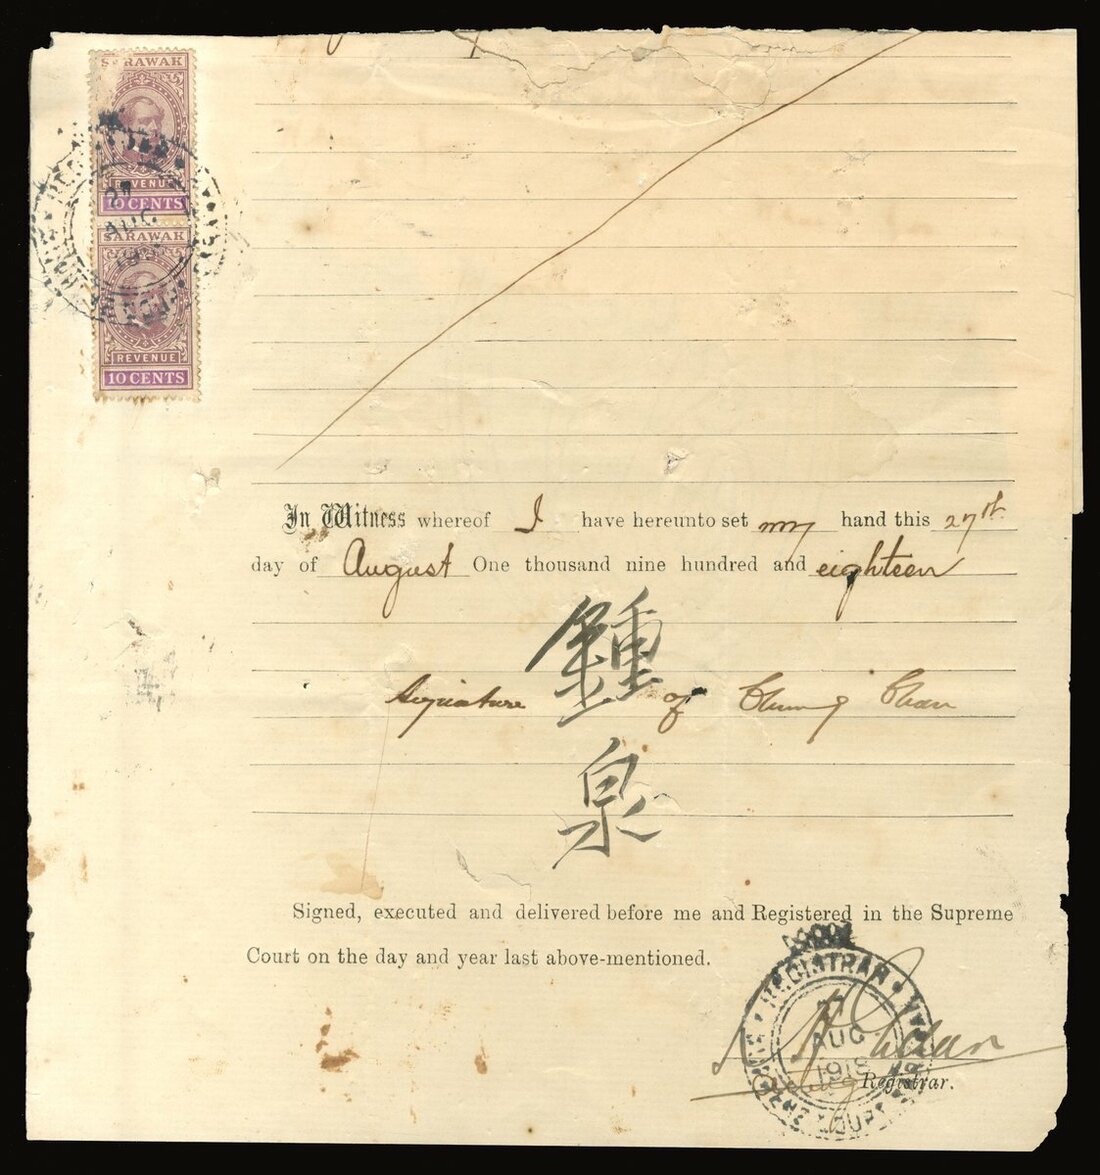 SARAWAK
REVENUE
10 CENTS
SARAWAK
REVENUE
10 CENTS
27
AUG
In Witness whereof I have hereunto set my hand this 27th
day of August One thousand nine hundred and eighteen
鍾
Signature of Chung Chan
泉
Signed, executed and delivered before me and Registered in the Supreme
Court on the day and year last above-mentioned.
REGISTRAR
27
AUG
1918
Acting Registrar.
SUPREME COURT